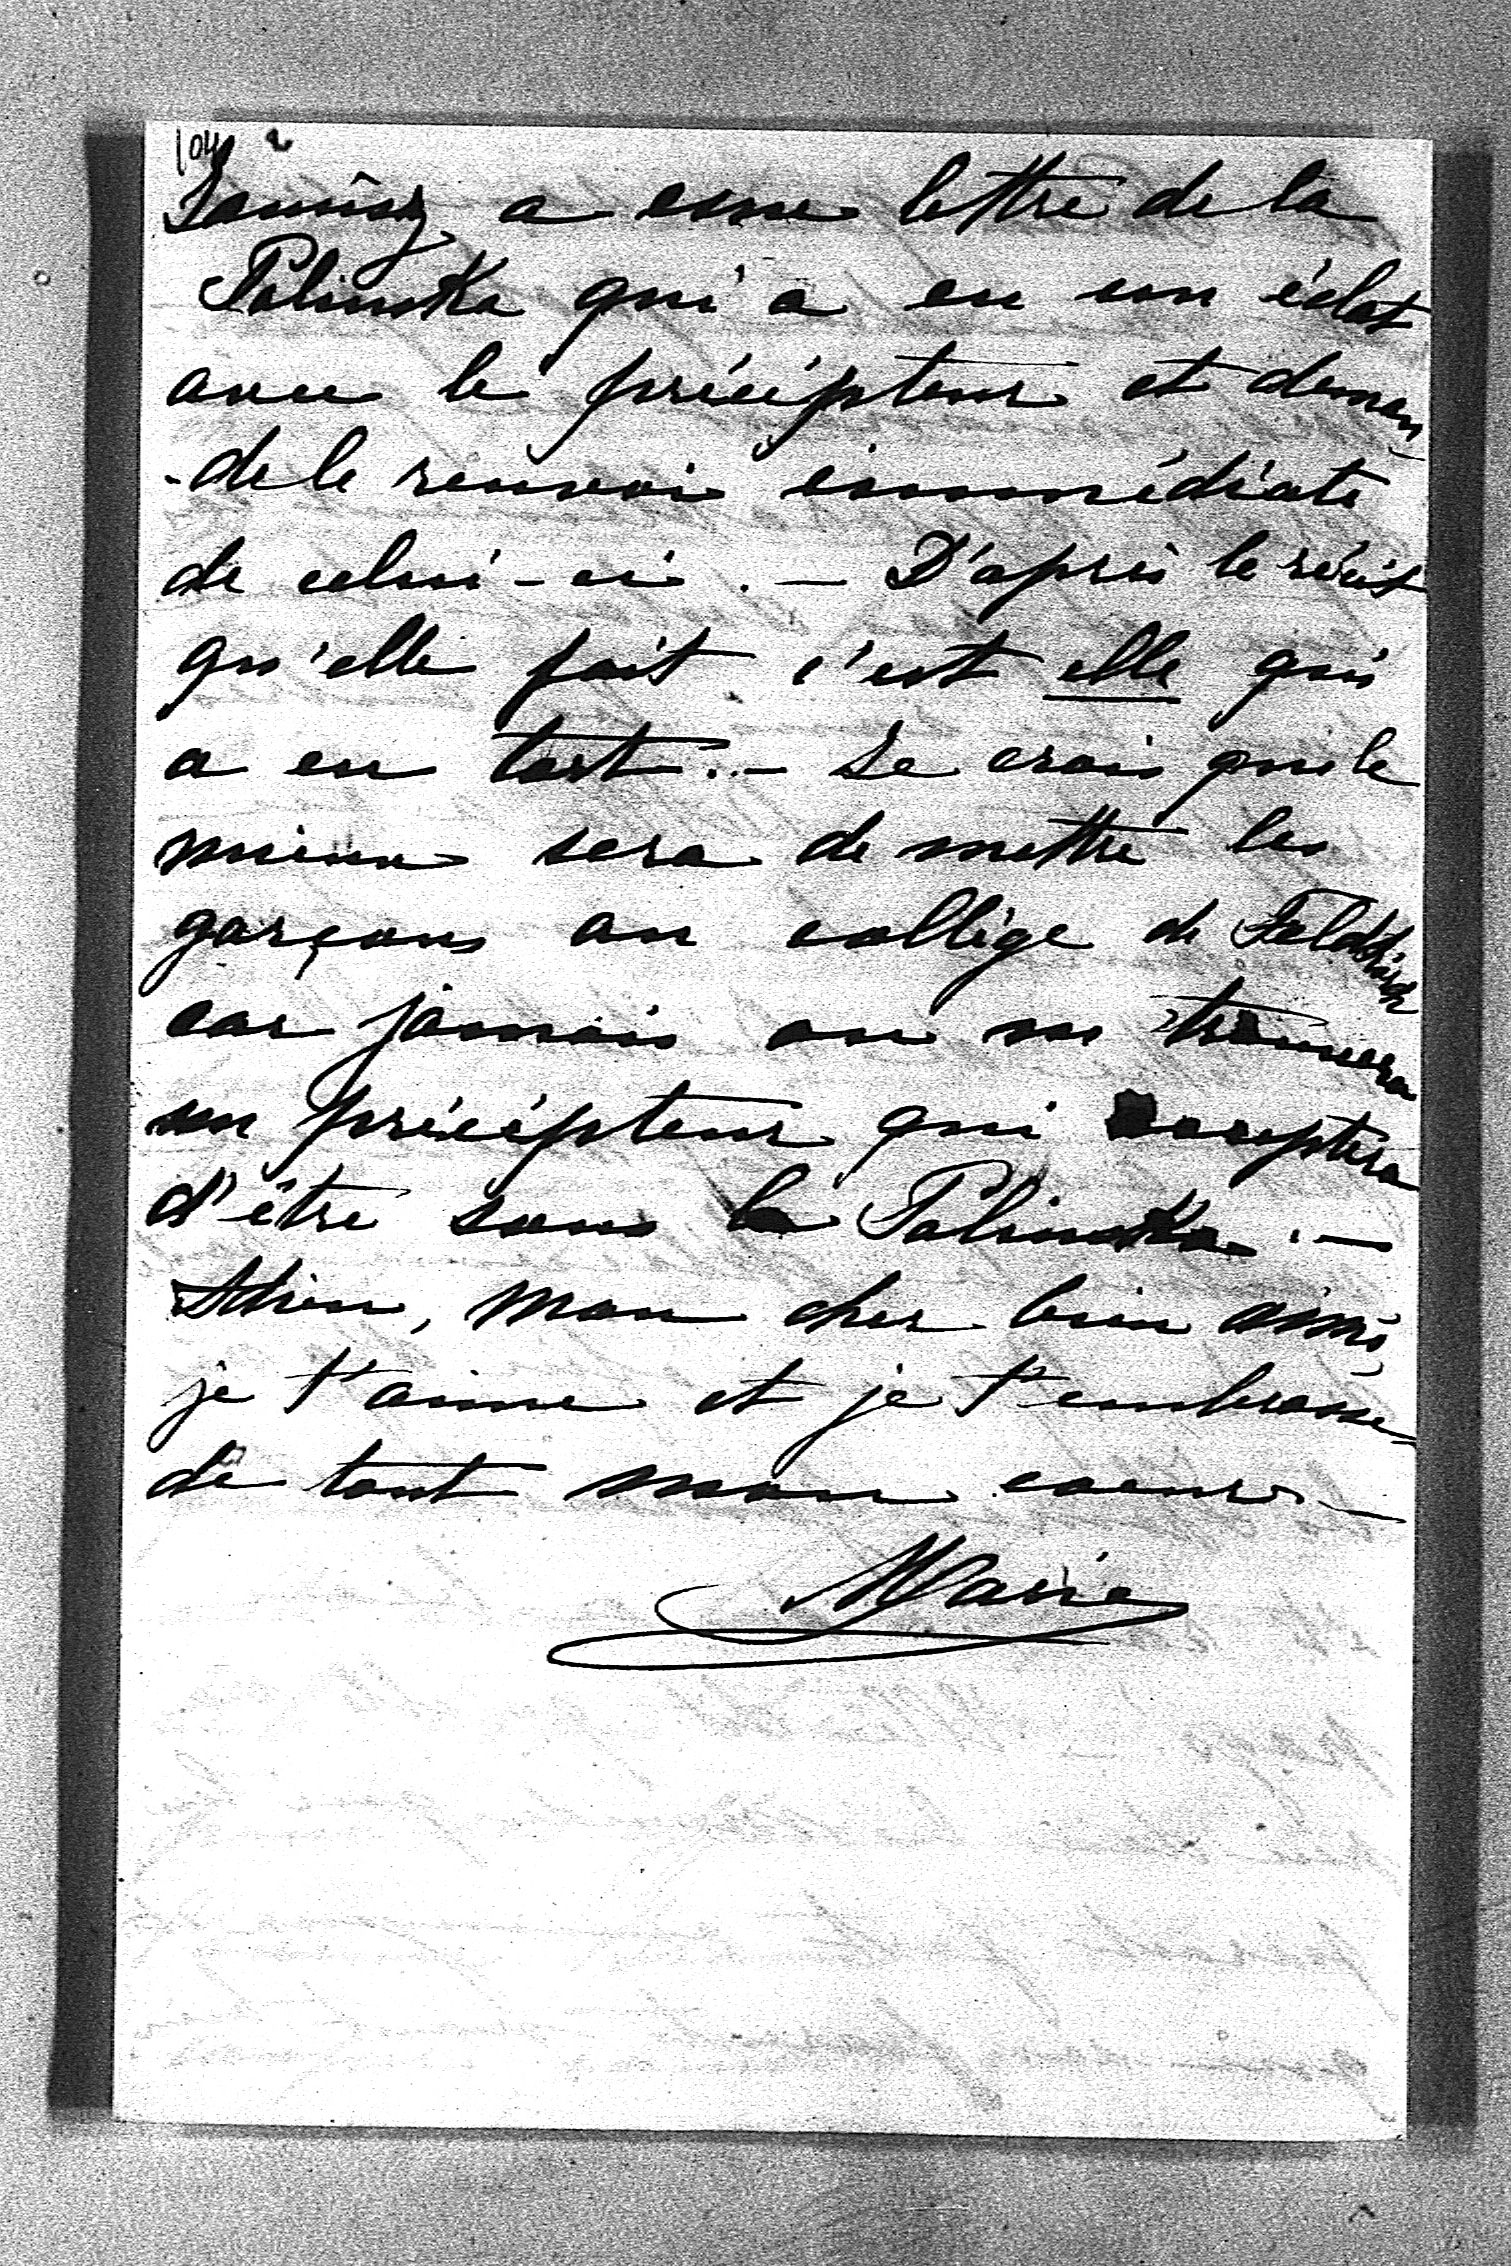 104
Janusz a une lettre de la
Palinska qui a eu un éclat
avec le précépteur et deman
-de le renvoi immédiate
de celui-ci. — D'après le récit
qu'elle fait c'est elle qui
a eu tort. — Je crois que le
mieux sera de mettre les
garçons au collège de Feldkirch
car jamais on ne trouvera
un précépteur qui acceptera
d'être sous la Palinska. —
Adieu, mon cher bien aimé,
je t'aime et je t'embrasse
de tout mon coeur. —
Marie